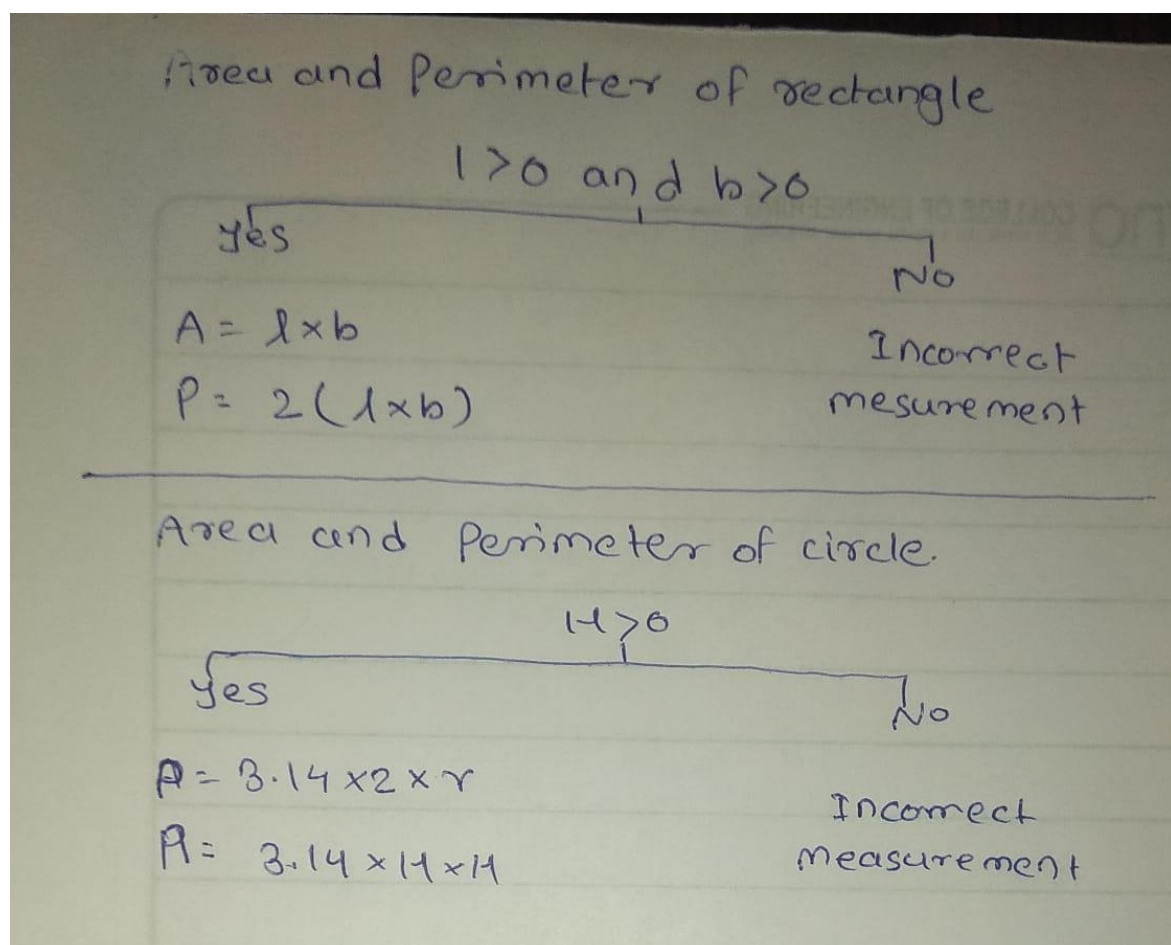 Area and Perimeter of rectangle
l>0 and b>0
Yes
No
A = l×b
P = 2(l×b)
Incorrect
mesurement
Area and Perimeter of circle.
r>0
Yes
No
P = 3.14 ×2 × r
A = 3.14 × r × r
Incorrect
measurement